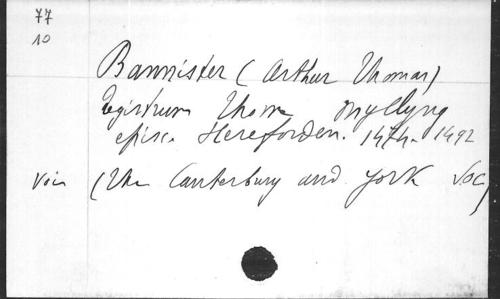 77
10
Bannister (Arthur Thomas)
Registrum Thome Myllyng
episc. Hereforden. 1474-1492
Voir (The Canterbury and York Soc)